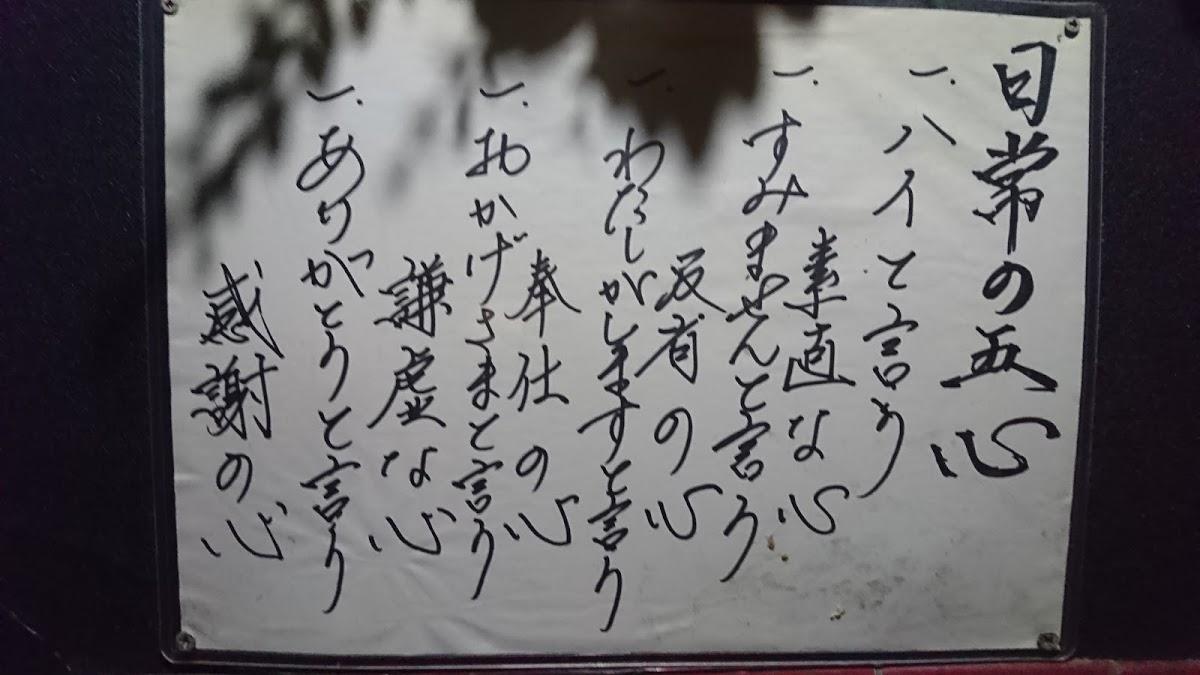 日常の五心
一、ハイと言う
素直な心
一、すみませんと言う
反省の心
一、わたしがしますと言う
奉仕の心
一、おかげさまと言う
謙虚な心
一、ありがとうと言う
感謝の心